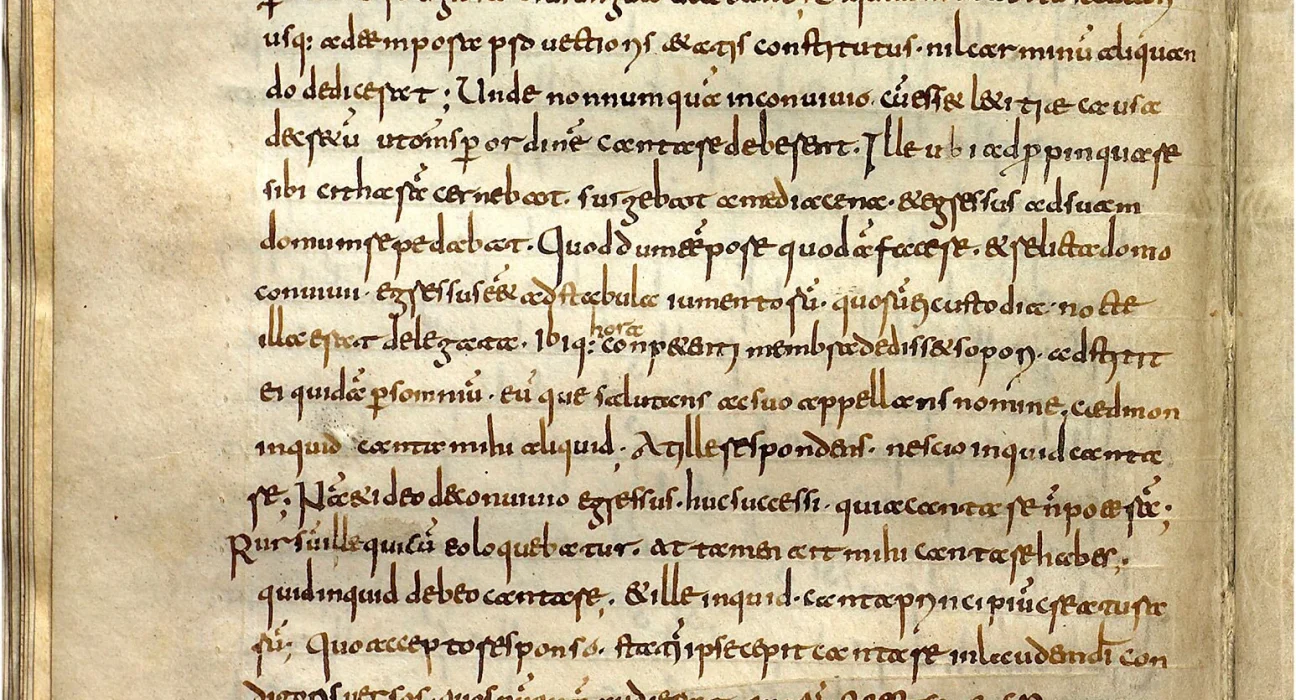 usq: ad tempora prouectioris &atis constitutus. nil carminū aliquan
do dedicerat; Unde nonnumquā inconuiuio. cū ess& l&itiae causa
decretū ut om̄s ꝑ ordinē cantare deberent. Ille ubi adꝓpinquare
sibi citharā cernebat. surgebat amedia cena. & egressus ad suam
domum repedabat. Quod dum tēpore quodā facere. & relicta domo
conuiuii. egressus eē& ad stabula iumentorū. quorū ei custodia nocte
illa erat delegata. Ibiq: hora conp&enti membra dediss& sopori. adstitit
ei quidā ꝑ somniū. eū que salutans ac suo appellans nomine, caedmon
inquid canta mihi aliquid. At ille respondens. nescio inquid canta
re; Nā & ideo deconuiuio egressus. huc successi. quia cantare n̄ poterā;
Rursū ille qui cū eo loquebatur. at tamen ait mihi cantare habes;
quid inquid debeo cantare. & ille inquid. canta principiū creatura
rū; Quo accepto responso. statī ipse cepit cantare in laudem dī con